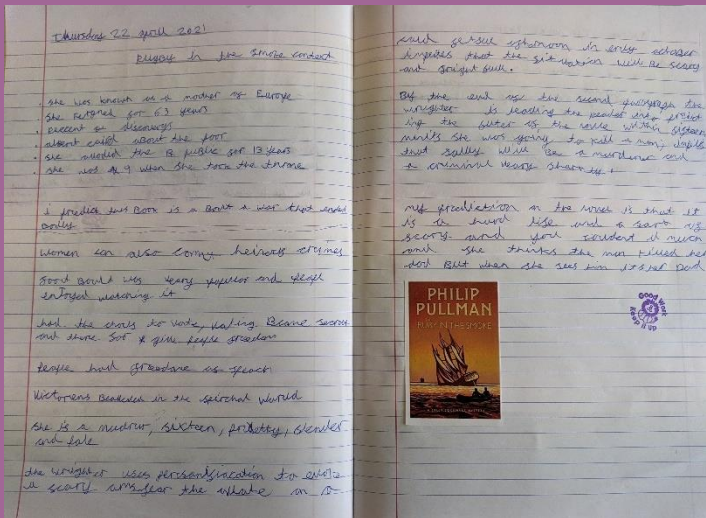 Thursday 22 April 2021
Rugby in the smoke context
she was known as a mother of Europe
she reigned for 63 years
decent of discoverys
albert cared about the poor
she avoided the B public for 13 years
she was 9 when she took the throne
i predict this Book is a Bout a war that ended
Badly
Women can also comy heiners crimes
Foot Boull was very populor and people
enjoyed watching it
had the chois to vote, voting Became secret
and there for give people freedom
People had freedome of speach
Victoriens Beleeved in the spirchal world
she is a murdrur, sixteen, prittetty, slender
and pale
the wrighter uses persanifacation to
a scary the whale on
cold fersue afternoon in erly october
impetes that the situation will be scary
and frightfull.
By the end of the second paragraph the
wrighter is leading the reader into
ing the of the within sixteen
minits she was going to kill a man,
that sally will be a murdurer and
a criminal veary shortly
my prediction on the novel is that it
is a hard life and a sort of
scary and you much
and she thinks the man killed her
dad But when she sees him
PHILIP
PULLMAN
RUBY IN THE SMOKE
A SALLY LOCKHART MYSTERY
Good Work
Keep it up